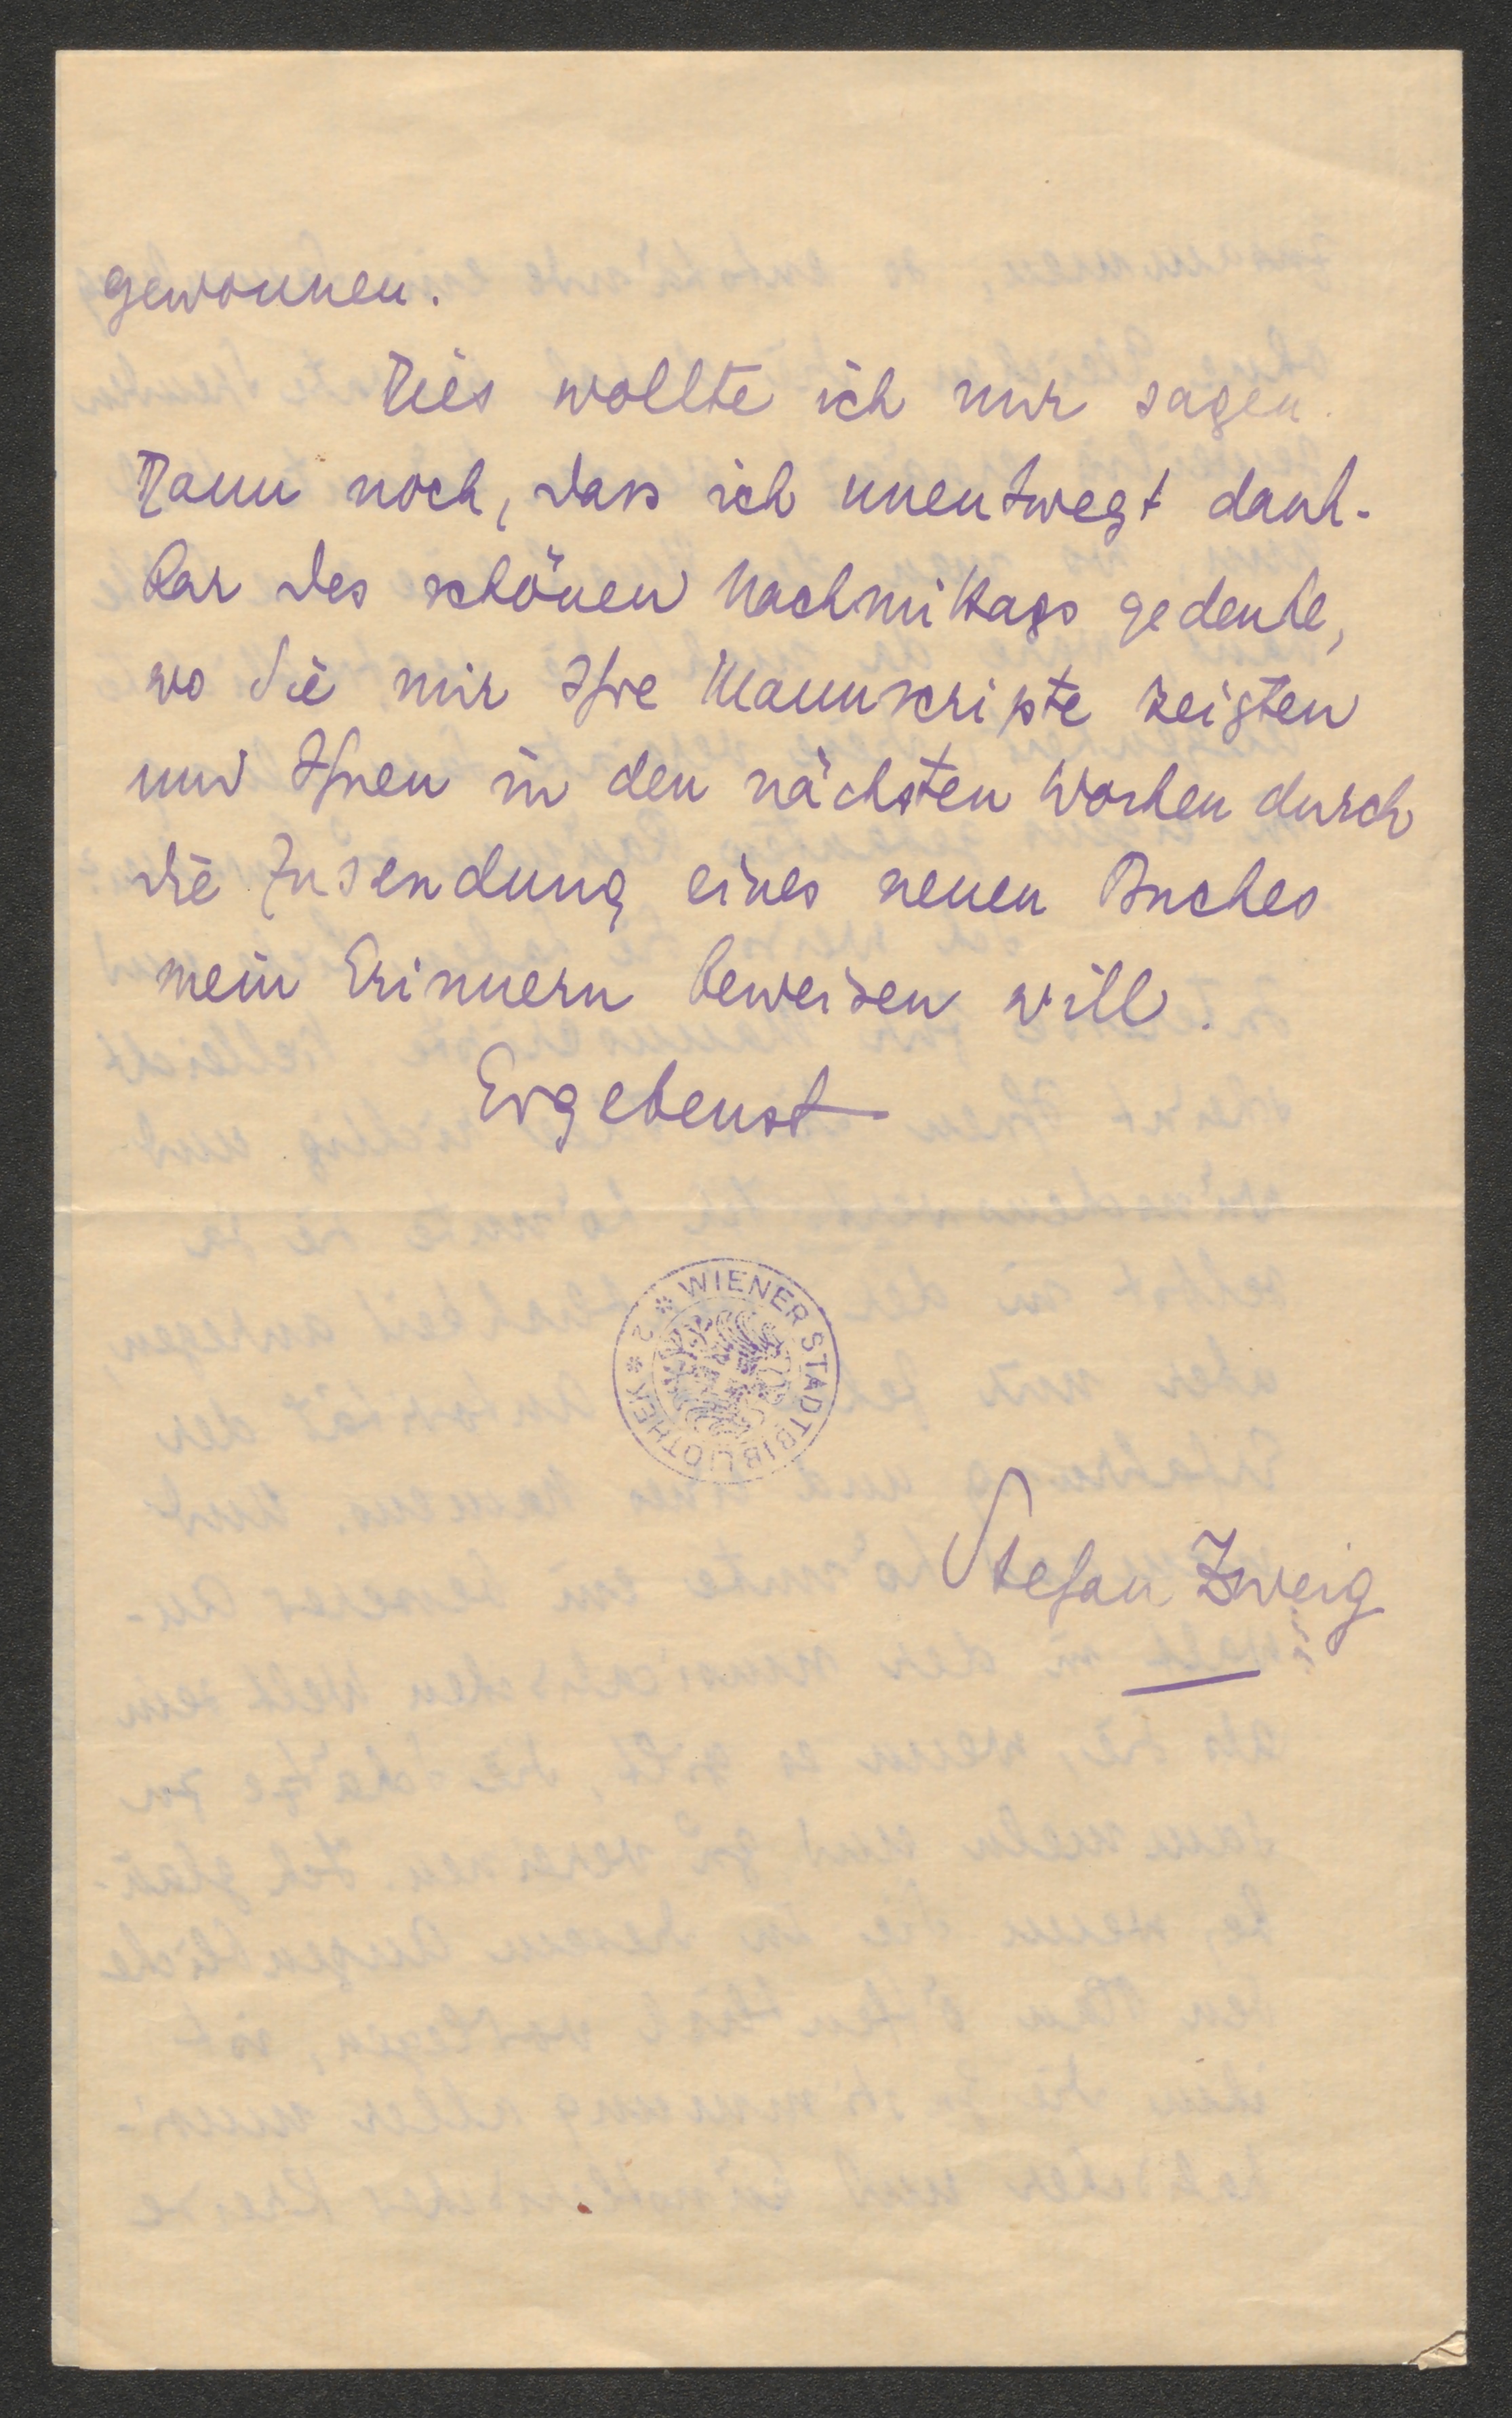 gewonnen.
Dies wollte ich nur sagen.
Dann noch, dass ich unentwegt dank-
bar des schönen Nachmittags gedenke,
wo Sie mir Ihre Manuscripte zeigten
und Ihnen in den nächsten Wochen durch
die Zusendung eines neuen Buches
mein Erinnern beweisen will.
Ergebenst
* WIENER STADTBIBLIOTHEK * 2
Stefan Zweig